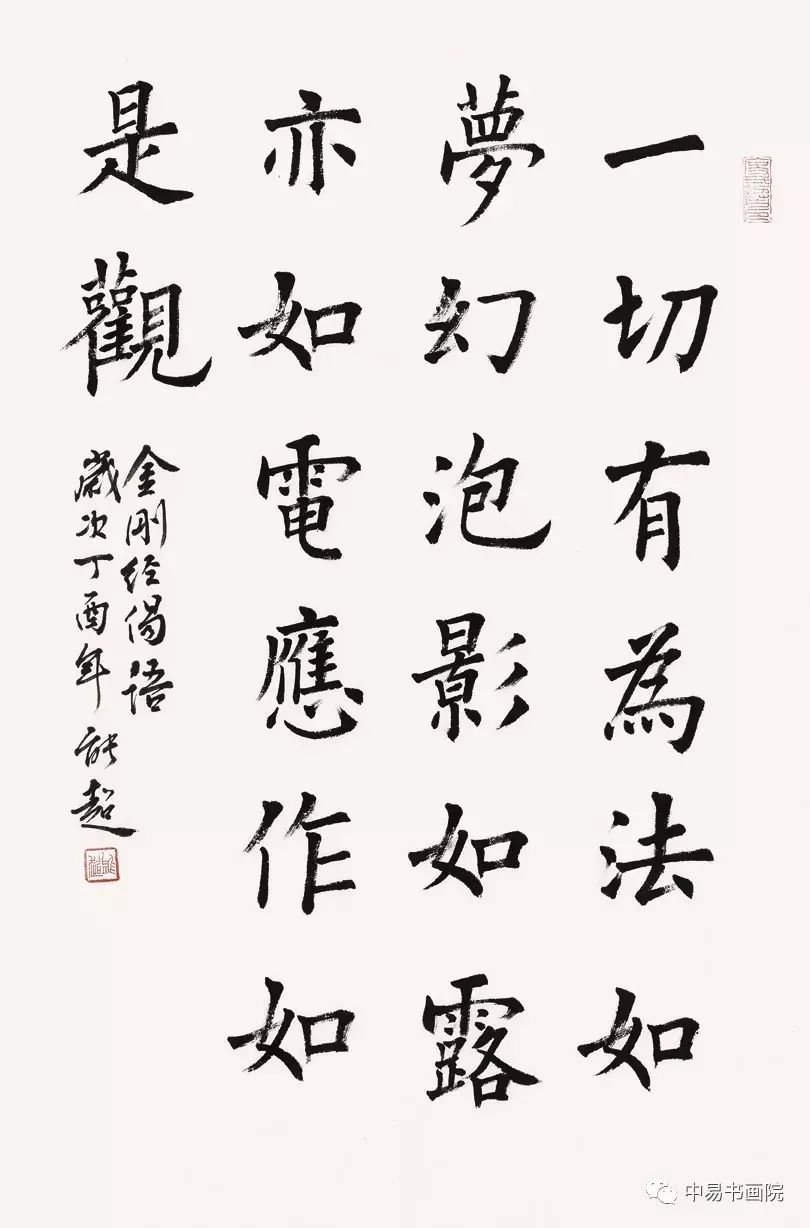 一切有為法如
夢幻泡影如露
亦如電應作如
是觀
金剛经偈语
歲次丁酉年 能超
中易书画院